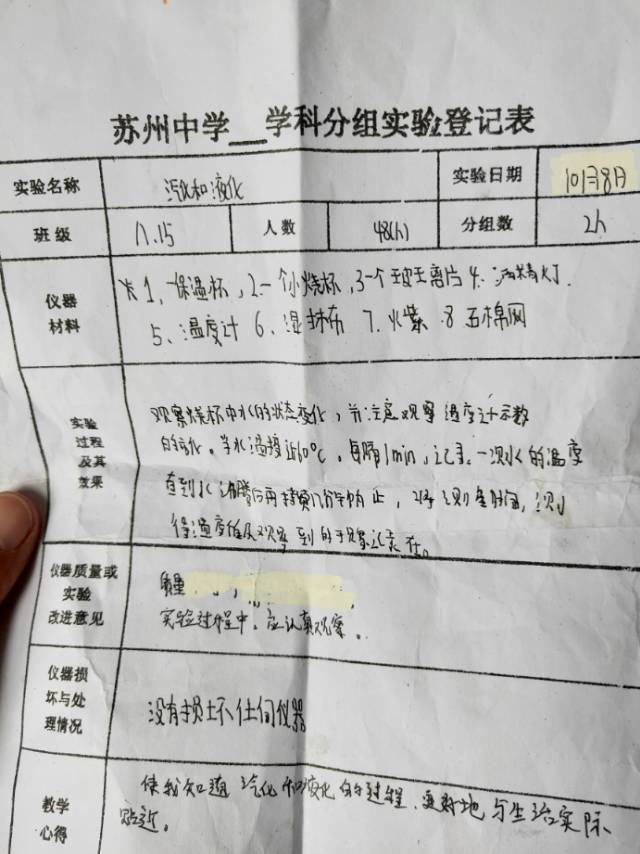 苏州中学__学科分组实验登记表
实验名称 汽化和液化 实验日期 10月8日
班级 八.15 人数 48(人) 分组数 2人
仪器材料
1、一保温杯,2.一个小烧杯,3一个玻璃片4.酒精灯.
5、温度计 6、湿抹布 7.火柴 8石棉网
实验过程及其效果
观察烧杯中水的状态变化,并注意观察温度计示数
的变化。当水温接近60℃,每隔1min,记录一次水的温度
直到水沸腾后再持续几分钟为止,将测量时间,测
得温度值及观察到的现象记录在。
仪器质量或实验改进意见
质量
实验过程中,应认真观察。
仪器损坏与处理情况
没有损坏任何仪器
教学心得
使我知道汽化和液化的过程,更好地与生活实际
贴近。